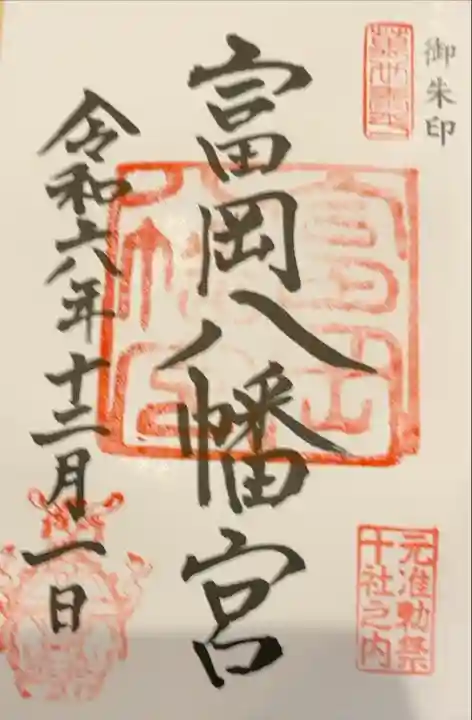 御朱印
富岡八幡宮
令和六年十二月一日
元准勅祭
十社之内